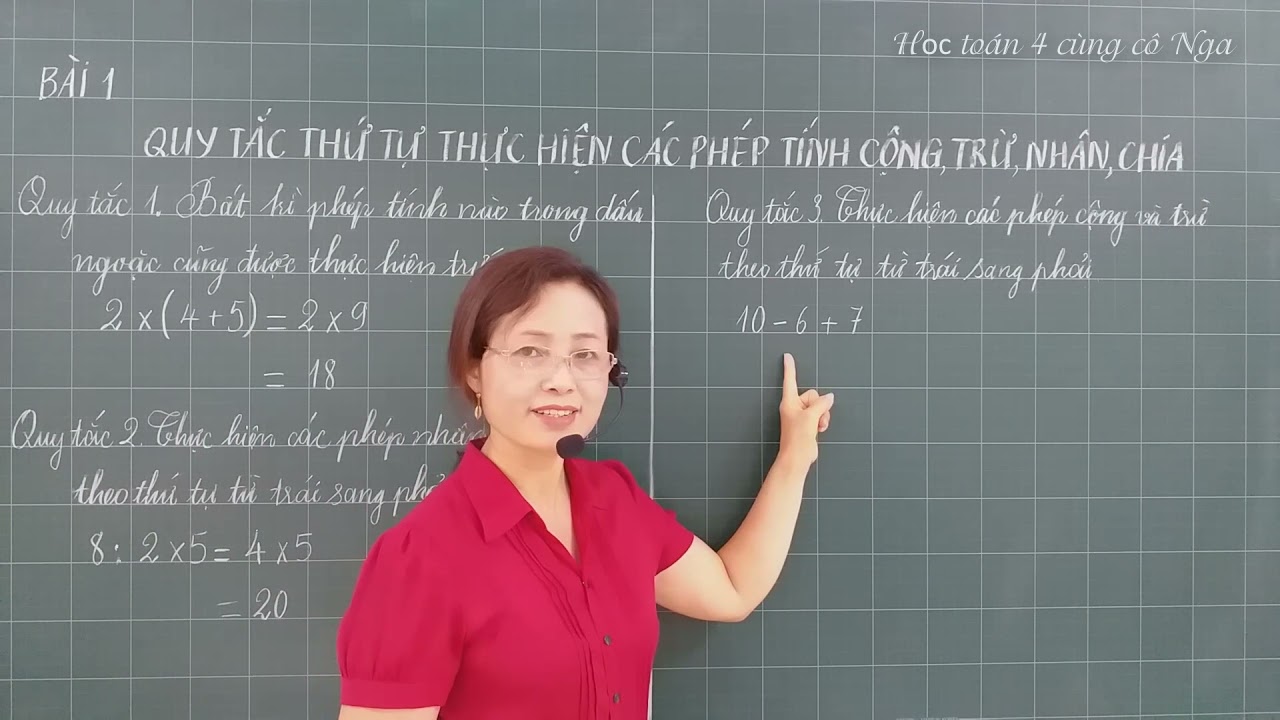 Học toán 4 cùng cô Nga
BÀI 1
QUY TẮC THỨ TỰ THỰC HIỆN CÁC PHÉP TÍNH CỘNG, TRỪ, NHÂN, CHIA
Quy tắc 1. Bất kì phép tính nào trong dấu
ngoặc cũng được thực hiện
2 x (4 + 5) = 2 x 9
= 18
Quy tắc 2. Thực hiện các phép nhân
theo thứ tự từ trái sang
8 : 2 x 5 = 4 x 5
= 20
Quy tắc 3. Thực hiện các phép cộng và trừ
theo thứ tự từ trái sang phải
10 - 6 + 7